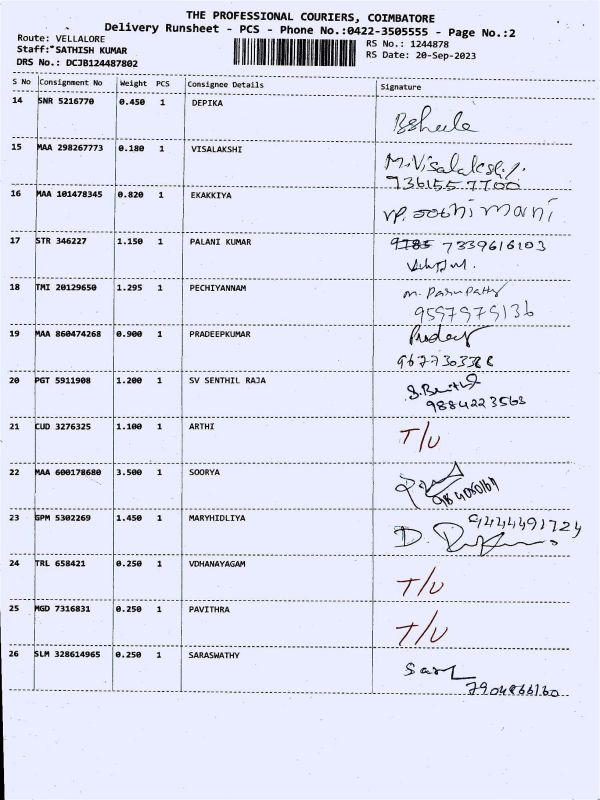 THE PROFESSIONAL COURIERS, COIMBATORE
Delivery Runsheet - PCS - Phone No.:0422-3505555 - Page No.:2
Route: VELLALORE
Staff:*SATHISH KUMAR
DRS No.: DCJB124487802
RS No.: 1244878
RS Date: 20-Sep-2023
S No Consignment No Weight PCS Consignee Details Signature
14 SNR 5216770 0.450 1 DEPIKA
15 MAA 298267773 0.180 1 VISALAKSHI M.Visalakshi
9361557700
16 MAA 101478345 0.820 1 EKAKKIYA VP. Jothimani
17 STR 346227 1.150 1 PALANI KUMAR 9785 7339616103
18 TMI 20129650 1.295 1 PECHIYANNAM m. Pasupathy
9597979136
19 MAA 860474268 0.900 1 PRADEEPKUMAR
9677303388
20 PGT 5911908 1.200 1 SV SENTHIL RAJA
9884223563
21 CUD 3276325 1.100 1 ARTHI T/U
22 MAA 600178680 3.500 1 SOORYA
23 GPM 5302269 1.450 1 MARYHIDLIYA 9444491724
D.
24 TRL 658421 0.250 1 VDHANAYAGAM T/U
25 MGD 7316831 0.250 1 PAVITHRA T/U
26 SLM 328614965 0.250 1 SARASWATHY
7904866160